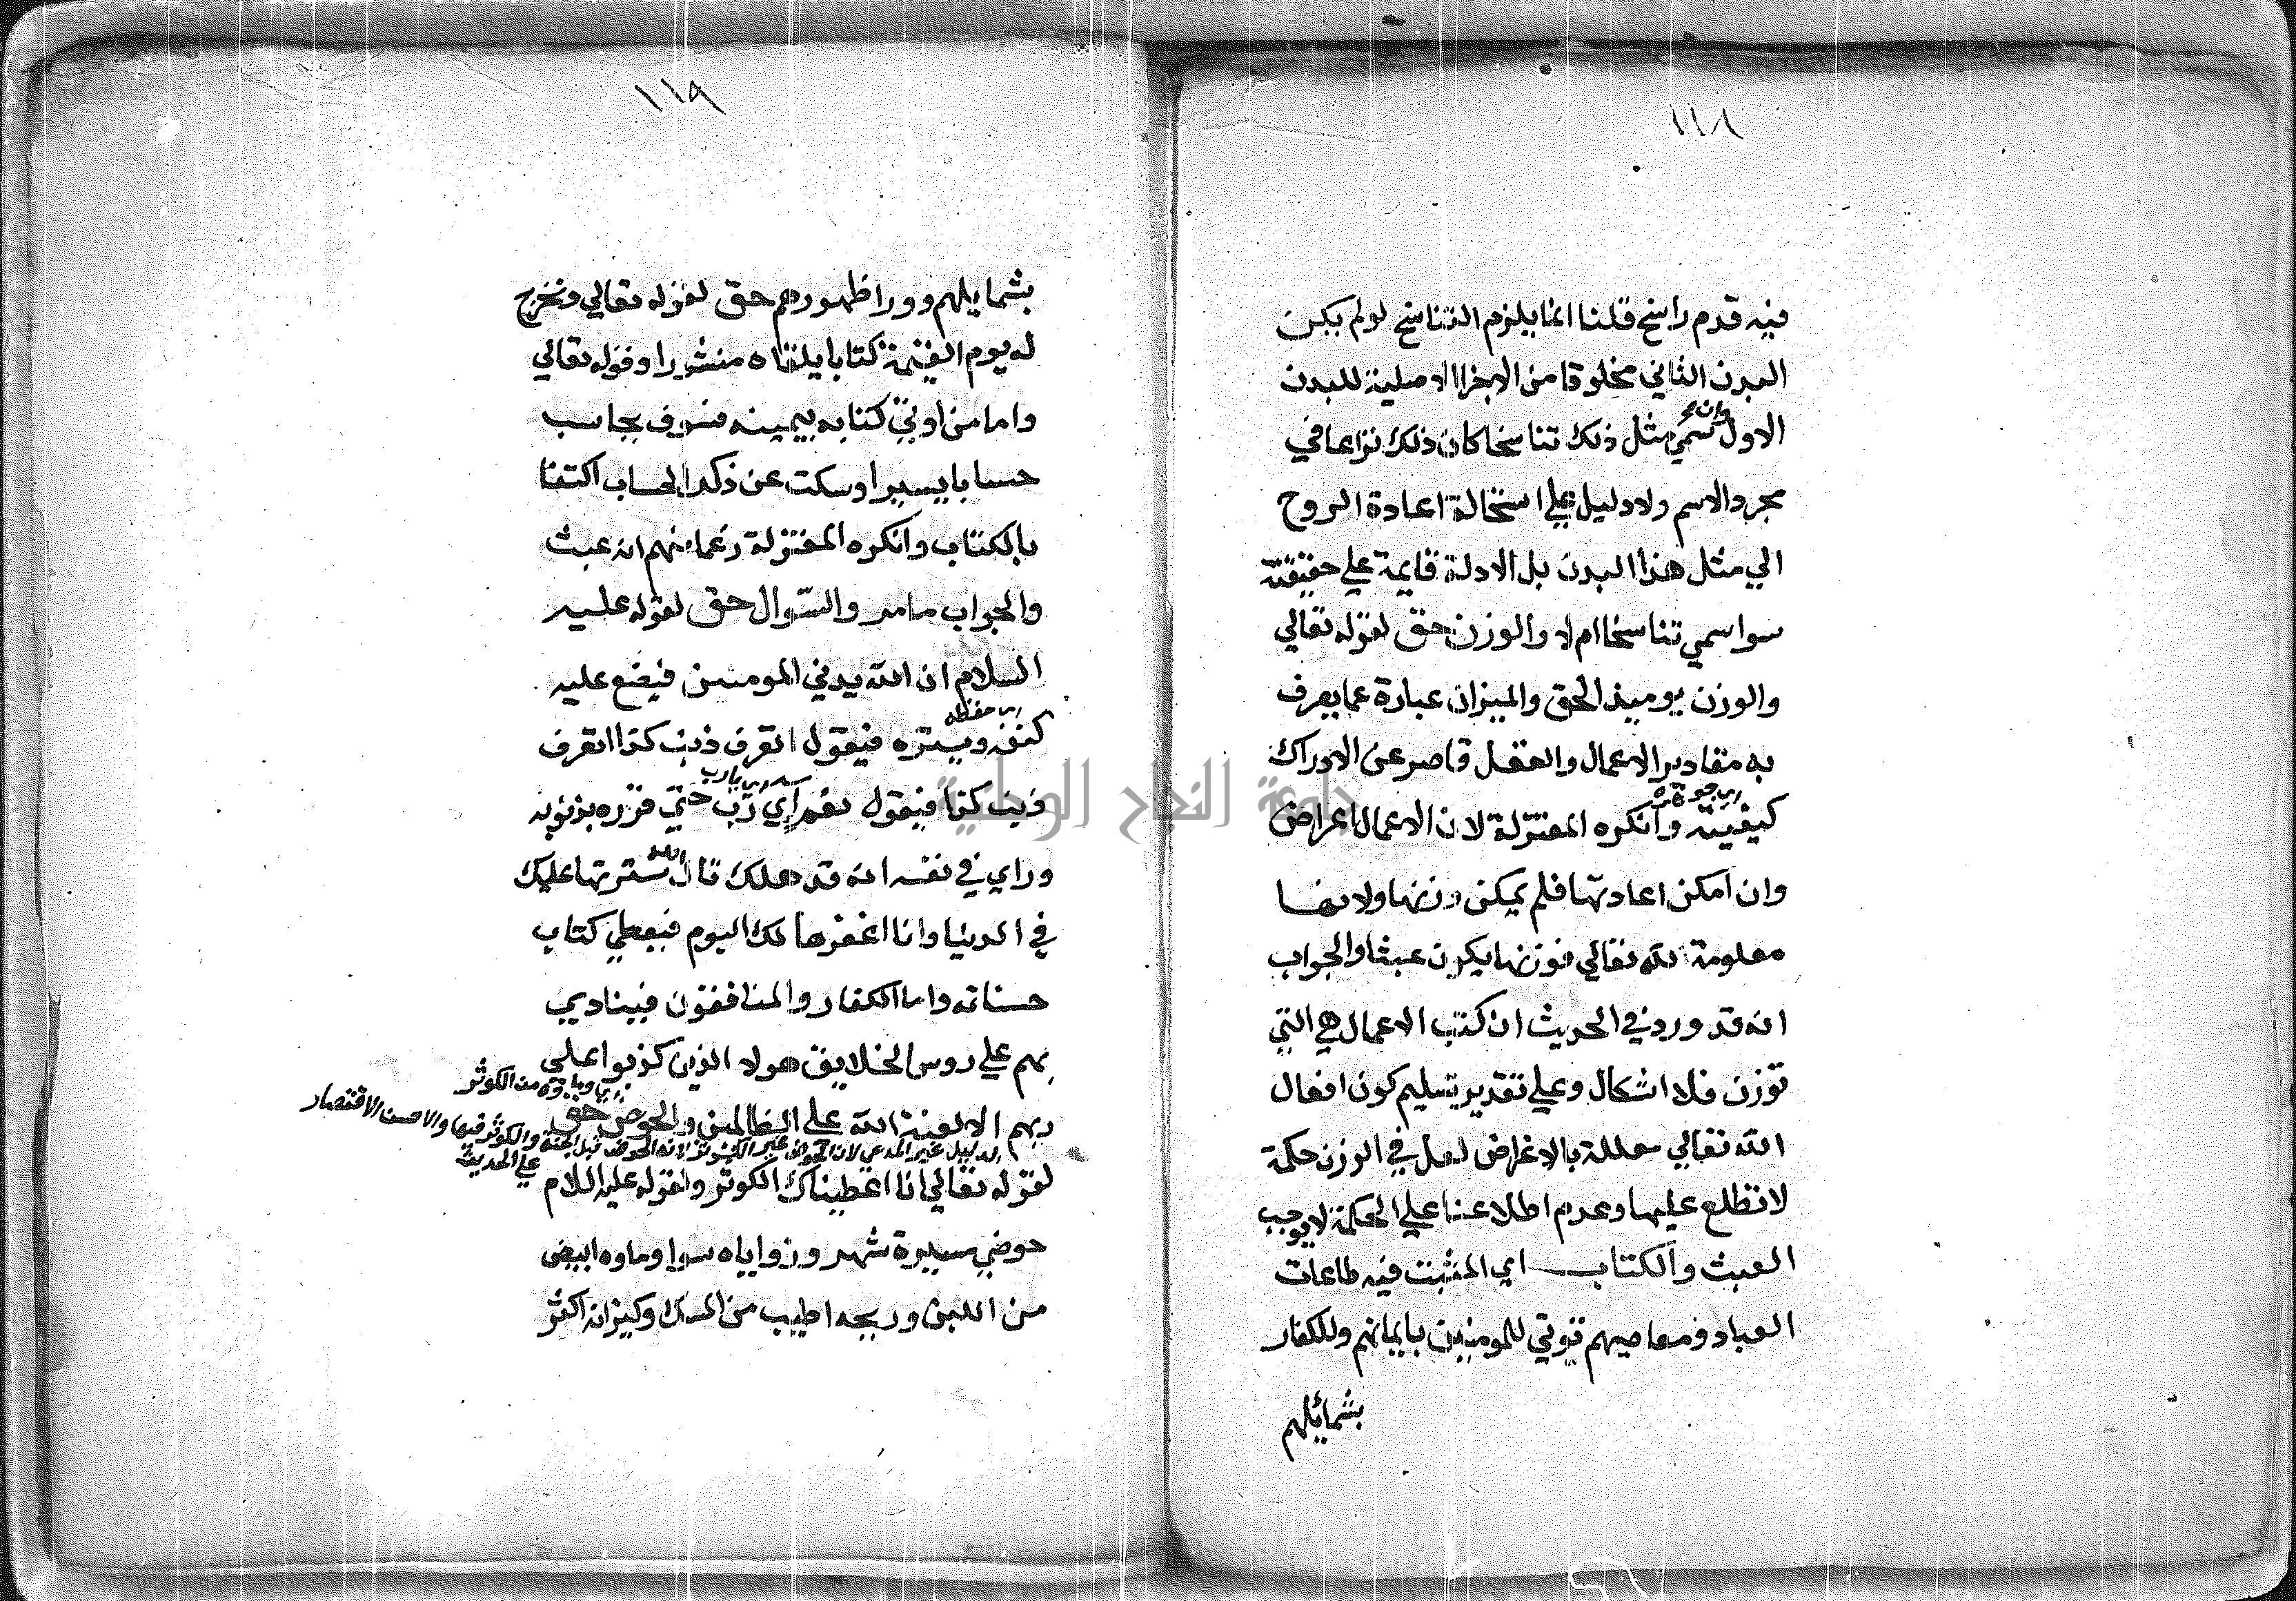 ١١٨
فيه قدم راسخ قلنا انما يلزم التناسخ لو لم يكن
البدن الثاني مخلوقا من الاجزا الاصلية للبدن
وان
الاول سمي مثل ذلك تناسخا كان ذلك نزاعا في
مجرد الاسم ولا دليل علي استحالة اعادة الروح
الي مثل هذا البدن بل الادلة قايمة علي حقيقته
سوا سمي تناسخا ام لا والوزن حق لقوله تعالي
والوزن يوميذ الحق والميزان عبارة عما يعرف
به مقادير الاعمال والعقل قاصر عن الادراك
كيفيته وانكره المعتزلة لان الاعمال اعراض
وان امكن اعادتها فلم يمكن وزنها ولانها
معلومة لله تعالي فوزنها يكون عبثا والجواب
انه قد ورد في الحديث ان كتب الاعمال هي التي
توزن فلا اشكال وعلي تقدير تسليم كون افعال
الله تعالي معللة بالاغراض لعل في الوزن حكمة
لا نطلع عليها وعدم اطلاعنا علي الحكمة لا يوجب
العبث والكتاب اي المثبت فيه طاعات
العباد ومعاصيهم توتي للمومنين بايمانهم وللكفار
بشمائلهم
جامعة النجاح الوطنية
١١٩
بشمايلهم وورا ظهورهم حق لقوله تعالي ونخرج
له يوم القيمة كتابا يلقاه منشورا وقوله تعالي
واما من اوتي كتابه بيمينه فسوف يحاسب
حسابا يسيرا وسكت عن ذكر الحساب اكتفا
بالكتاب وانكره المعتزلة زعما منهم انه عبث
والجواب ما مر والسوال حق لقوله عليه
السلام ان الله يدني المومن فيضع عليه
اي حفظه
كنفه ويستره فيقول اتعرف ذنب كذا اتعرف
اي يارب
ذنب كذا فيقول نعم اي رب حتي قرره بذنوبه
الله
وراي في نفسه انه قد هلك قال سترتها عليك
في الدنيا وانا اغفرها لك اليوم فيعطي كتاب
حسناته واما الكفار والمنافقون فينادي
بهم علي روس الخلايق هولا الذين كذبوا علي
من الكوثر
ربهم الا لعنة الله علي الظالمين والحوض حق
الدليل غير المدعي لان الحوض غير الكوثر لانه الحوض قبل الجنة والكوثر فيها والاحسن الاقتصار
علي الحديث
لقوله تعالي انا اعطيناك الكوثر ولقوله عليه السلام
حوضي مسيرة شهر وزواياه سوا وماوه ابيض
من اللبن وريحه اطيب من المسك وكيزانه اكثر